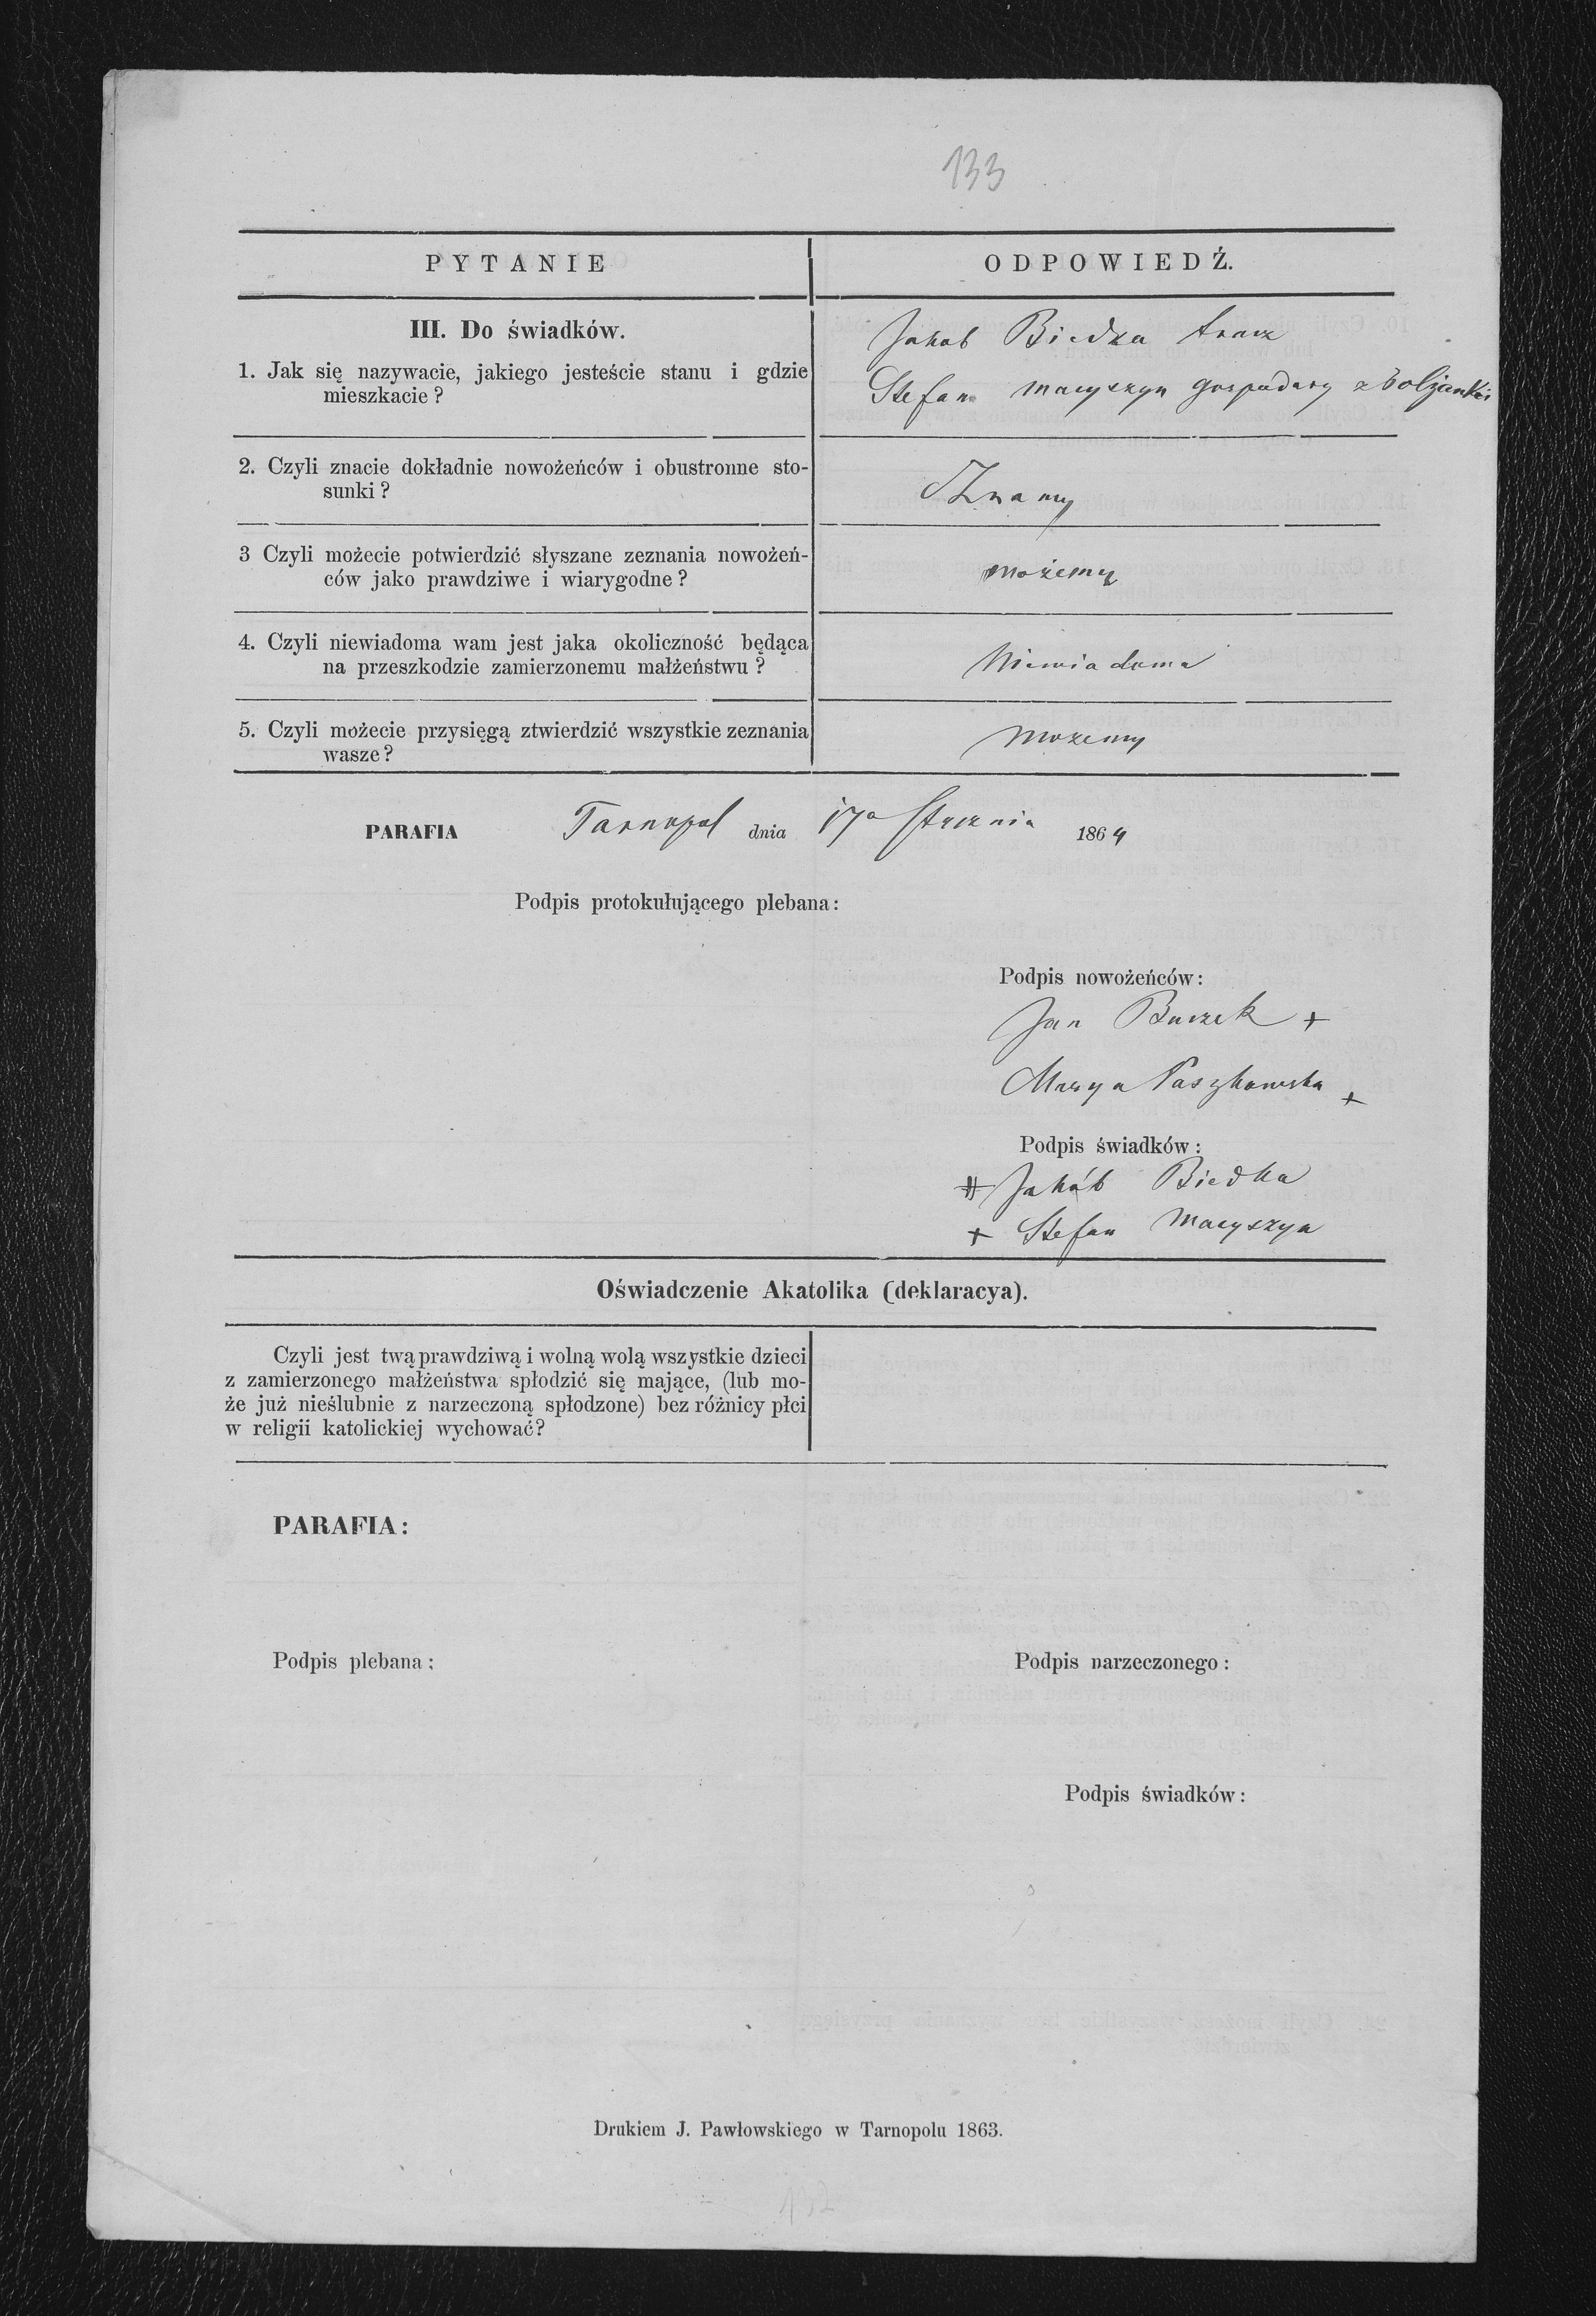 133
PYTANIE
ODPOWIEDŹ.
III. Do świadków.
1. Jak się nazywacie, jakiego jesteście stanu i gdzie
mieszkacie?
Jakob Biedka tracz
Stefan Macyszyn gospodarz
2. Czyli znacie dokładnie nowożeńców i obustronne sto-
sunki?
Znamy
3 Czyli możecie potwierdzić słyszane zeznania nowożeń-
ców jako prawdziwe i wiarygodne?
możemy
4. Czyli niewiadoma wam jest jaka okoliczność będąca
na przeszkodzie zamierzonemu małżeństwu?
Niewiadoma
5. Czyli możecie przysięgą ztwierdzić wszystkie zeznania
wasze?
Mozemy
PARAFIA Tarnopol dnia 17o Stycznia 1864
Podpis protokułującego plebana:
Podpis nowożeńców:
Jan Buczek +
Marya Paszkowska +
Podpis świadków:
Jakób Biedka
+ Stefan Macyszyn
Oświadczenie Akatolika (deklaracya).
Czyli jest twą prawdziwą i wolną wolą wszystkie dzieci
z zamierzonego małżeństwa spłodzić się mające, (lub mo-
że już nieślubnie z narzeczoną spłodzone) bez różnicy płci
w religii katolickiej wychować?
PARAFIA:
Podpis plebana;
Podpis narzeczonego:
Podpis świadków:
Drukiem J. Pawłowskiego w Tarnopolu 1863.
132